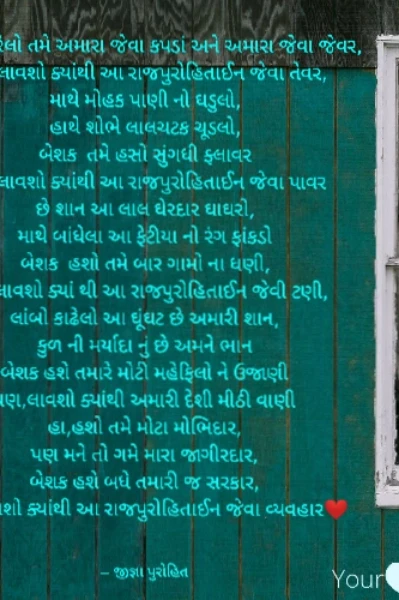 તમે અમારા જેવા કપડાં અને અમારા જેવા જેવર,
લાવશો ક્યાંથી આ રાજપુરોહિતાઈન જેવા તેવર,
માથે મોહક પાણી નો ઘડુલો,
હાથે શોભે લાલચટક ચૂડલો,
બેશક તમે હસો સુંગધી ફ્લાવર
લાવશો ક્યાંથી આ રાજપુરોહિતાઈન જેવા પાવર
છે શાન આ લાલ ઘેરદાર ઘાઘરો,
માથે બાંધેલા આ ફેટીયા નો રંગ ફાંકડો
બેશક હશો તમે બાર ગામો ના ધણી,
લાવશો ક્યાં થી આ રાજપુરોહિતાઈન જેવી ટણી,
લાંબો કાઢેલો આ ઘૂંઘટ છે અમારી શાન,
કુળ ની મર્યાદા નું છે અમને ભાન
બેશક હશે તમારે મોટી મહેફિલો ને ઉજાણી
પણ,લાવશો ક્યાંથી અમારી દેશી મીઠી વાણી
હા,હશો તમે મોટા મોભિદાર,
પણ મને તો ગમે મારા જાગીરદાર,
બેશક હશે બધે તમારી જ સરકાર,
ક્યાંથી આ રાજપુરોહિતાઈન જેવા વ્યવહાર❤️
– જીજ્ઞા પુરોહિત
Your